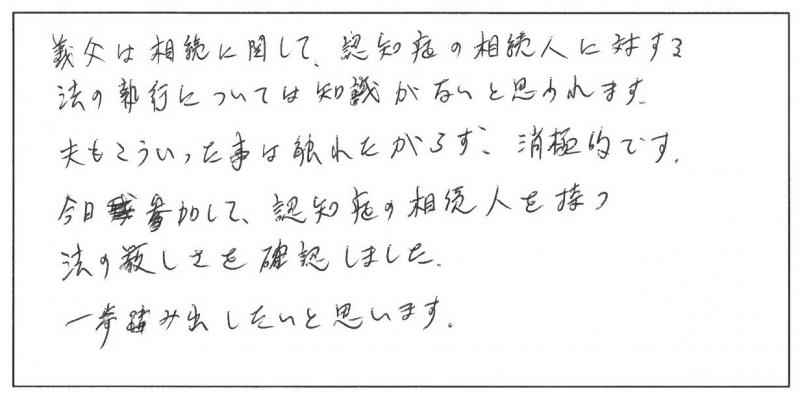 義父は相続に関して、認知症の相続人に対する
法の執行については知識がないと思われます。
夫もこういった事は触れたがらず、消極的です。
今日参加して、認知症の相続人を持つ
法の厳しさを確認しました。
一歩踏み出したいと思います。